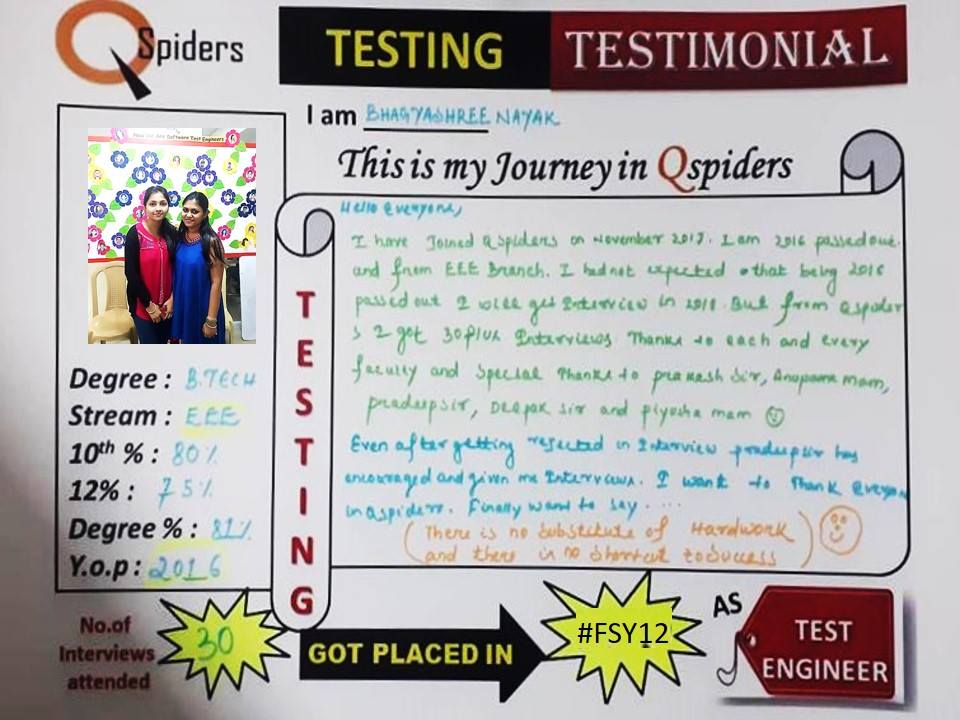 QSpiders
TESTING TESTIMONIAL
I am BHAGYASHREE NAYAK
This is my Journey in Qspiders
Now We Are Software Test Engineers
Degree : B.TECH
Stream : EEE
10th % : 80%
12% : 75%
Degree % : 81%
Y.o.p : 2016
TESTING
Hello Everyone,
I have Joined Qspiders on November 2017. I am 2016 passed out
and from EEE Branch. I had not expected that being 2016
passed out I will get Interview in 2018. But from Qspider
s I got 30 plus Interviews. Thanks to each and every
faculty and Special Thanks to prakash Sir, Anupama mam,
pradeep sir, Deepak sir and piyosha mam
Even after getting rejected in Interview pradeep sir has
encouraged and given me Interviews. I want to Thank Everyon
in Qspiders. Finally want to say ....
(There is no Substitute of Hardwork
and there is no shortcut to Success)
No.of
Interviews
attended
30
GOT PLACED IN
#FSY12
AS
TEST
ENGINEER